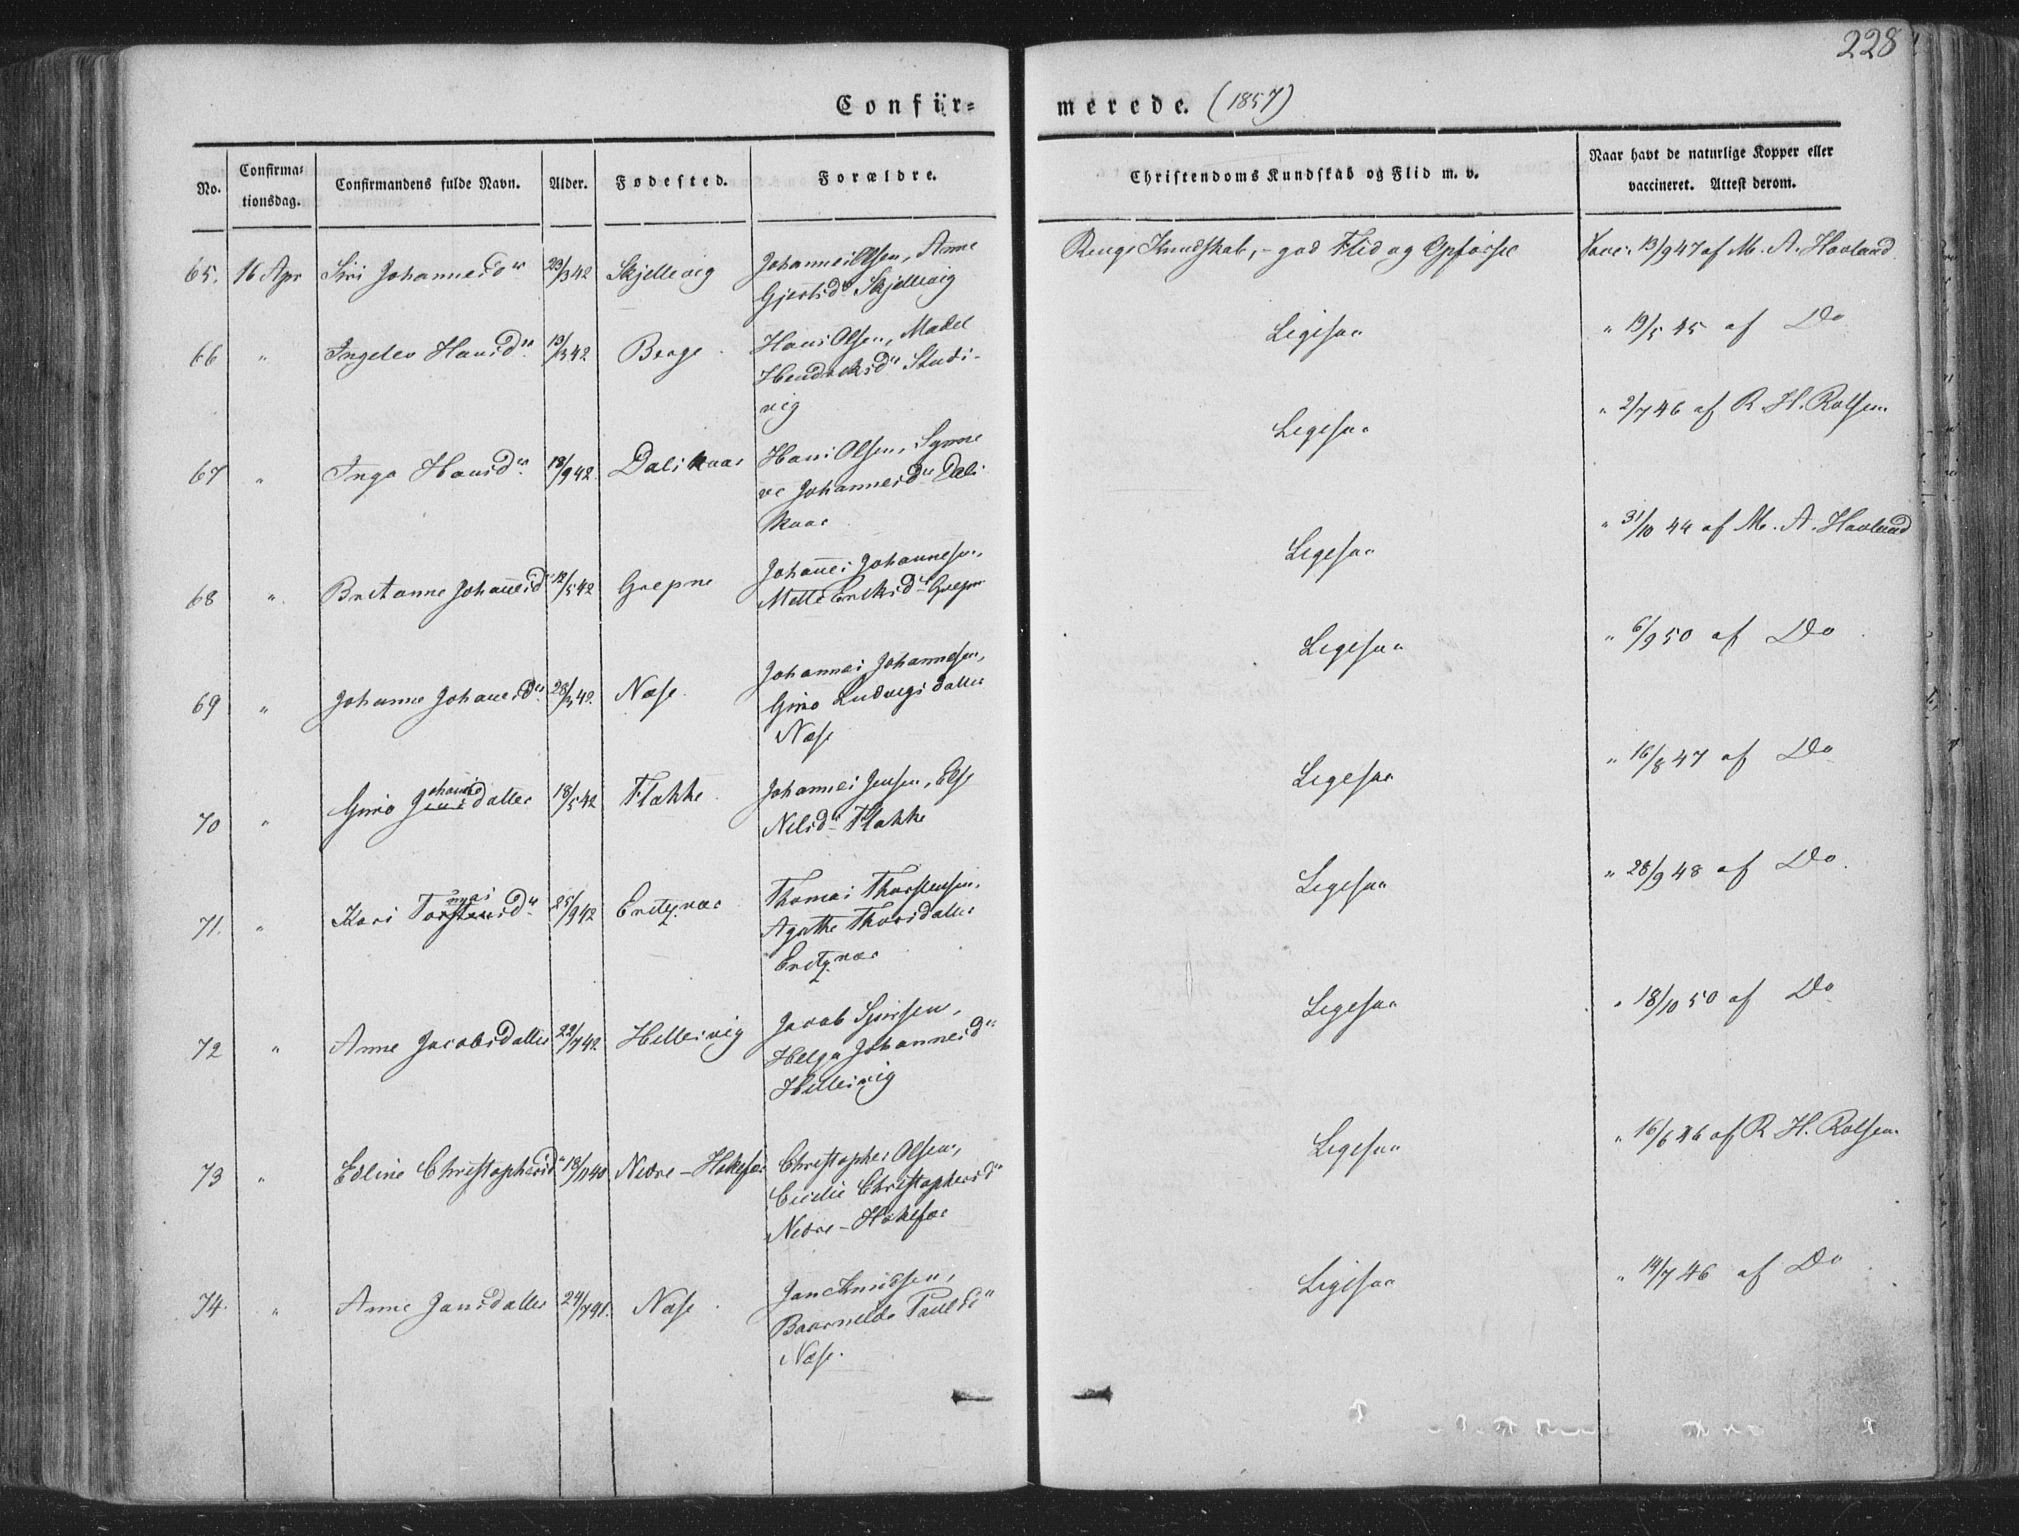 228
Confir-
merede. (1857)
No.
Confirma-
tionsdag.
Confirmandens fulde Navn.
Alder.
Fødested.
Forældre.
Christendoms Kundskab og Flid m. v.
Naar havt de naturlige Kopper eller
vaccineret. Attest derom.
65. 16 Apr Siri Johannesdr 23/3 42 Skjellevig Johannes Olsen, Anne
Gjertsdr Skjellevig
Ringe Kundskab, - god Flid og Opførsel
Vacc. 13/9 47 af M. A. Havland
66 " Ingelev Hansdr 13/3 42 Berge Hans Olsen, Madel
Hendriksdr Studs-
vig
Ligesaa
" 19/5 45 af Do
67 " Inga Hansdr 18/9 42 Dalskaar Hans Olsen, Synne
ve Johannesdr Dals
kaar
Ligesaa
" 2/7 46 af R. H. Rolfsen
68 " Britanne Johannesdr 12/5 42 Grepne Johannes Johannesen,
Mette Eriksdr Grepne
Ligesaa
" 31/10 44 af M. A. Havland
69 " Johanne Johannesdr 28/3 42 Næse Johannes Johannesen,
Guro Ludvigsdatter
Næse
Ligesaa
" 6/9 50 af Do
70 " Guro Johannesdatter 18/5 42 Flakke Johannes Jensen, Else
Nilsdr Flakke
Ligesaa
" 16/8 47 af Do
71. " Kari Tomasdr 25/9 42 Thomas Thorstensen,
Agathe Thorsdatter
Ligesaa
" 28/9 48 af Do
72 " Anne Jacobsdatter 22/7 42 Hellesvig Jacob Sjursen,
Helga Johannesdr
Hellesvig
Ligesaa
" 18/10 50 af Do
73 " Edline Christophersdr 18/11 40 Nedre-Hakefær Christopher Olsen,
Cecilie Christophersdr
Nedre-Hakefær
Ligesaa
" 16/6 46 af R H. Rolfsen
74. " Anne Jansdatter 24/7 41. Næse Jan Knudsen,
Paulsdr
Næse.
Ligesaa
" 14/7 46 af Do